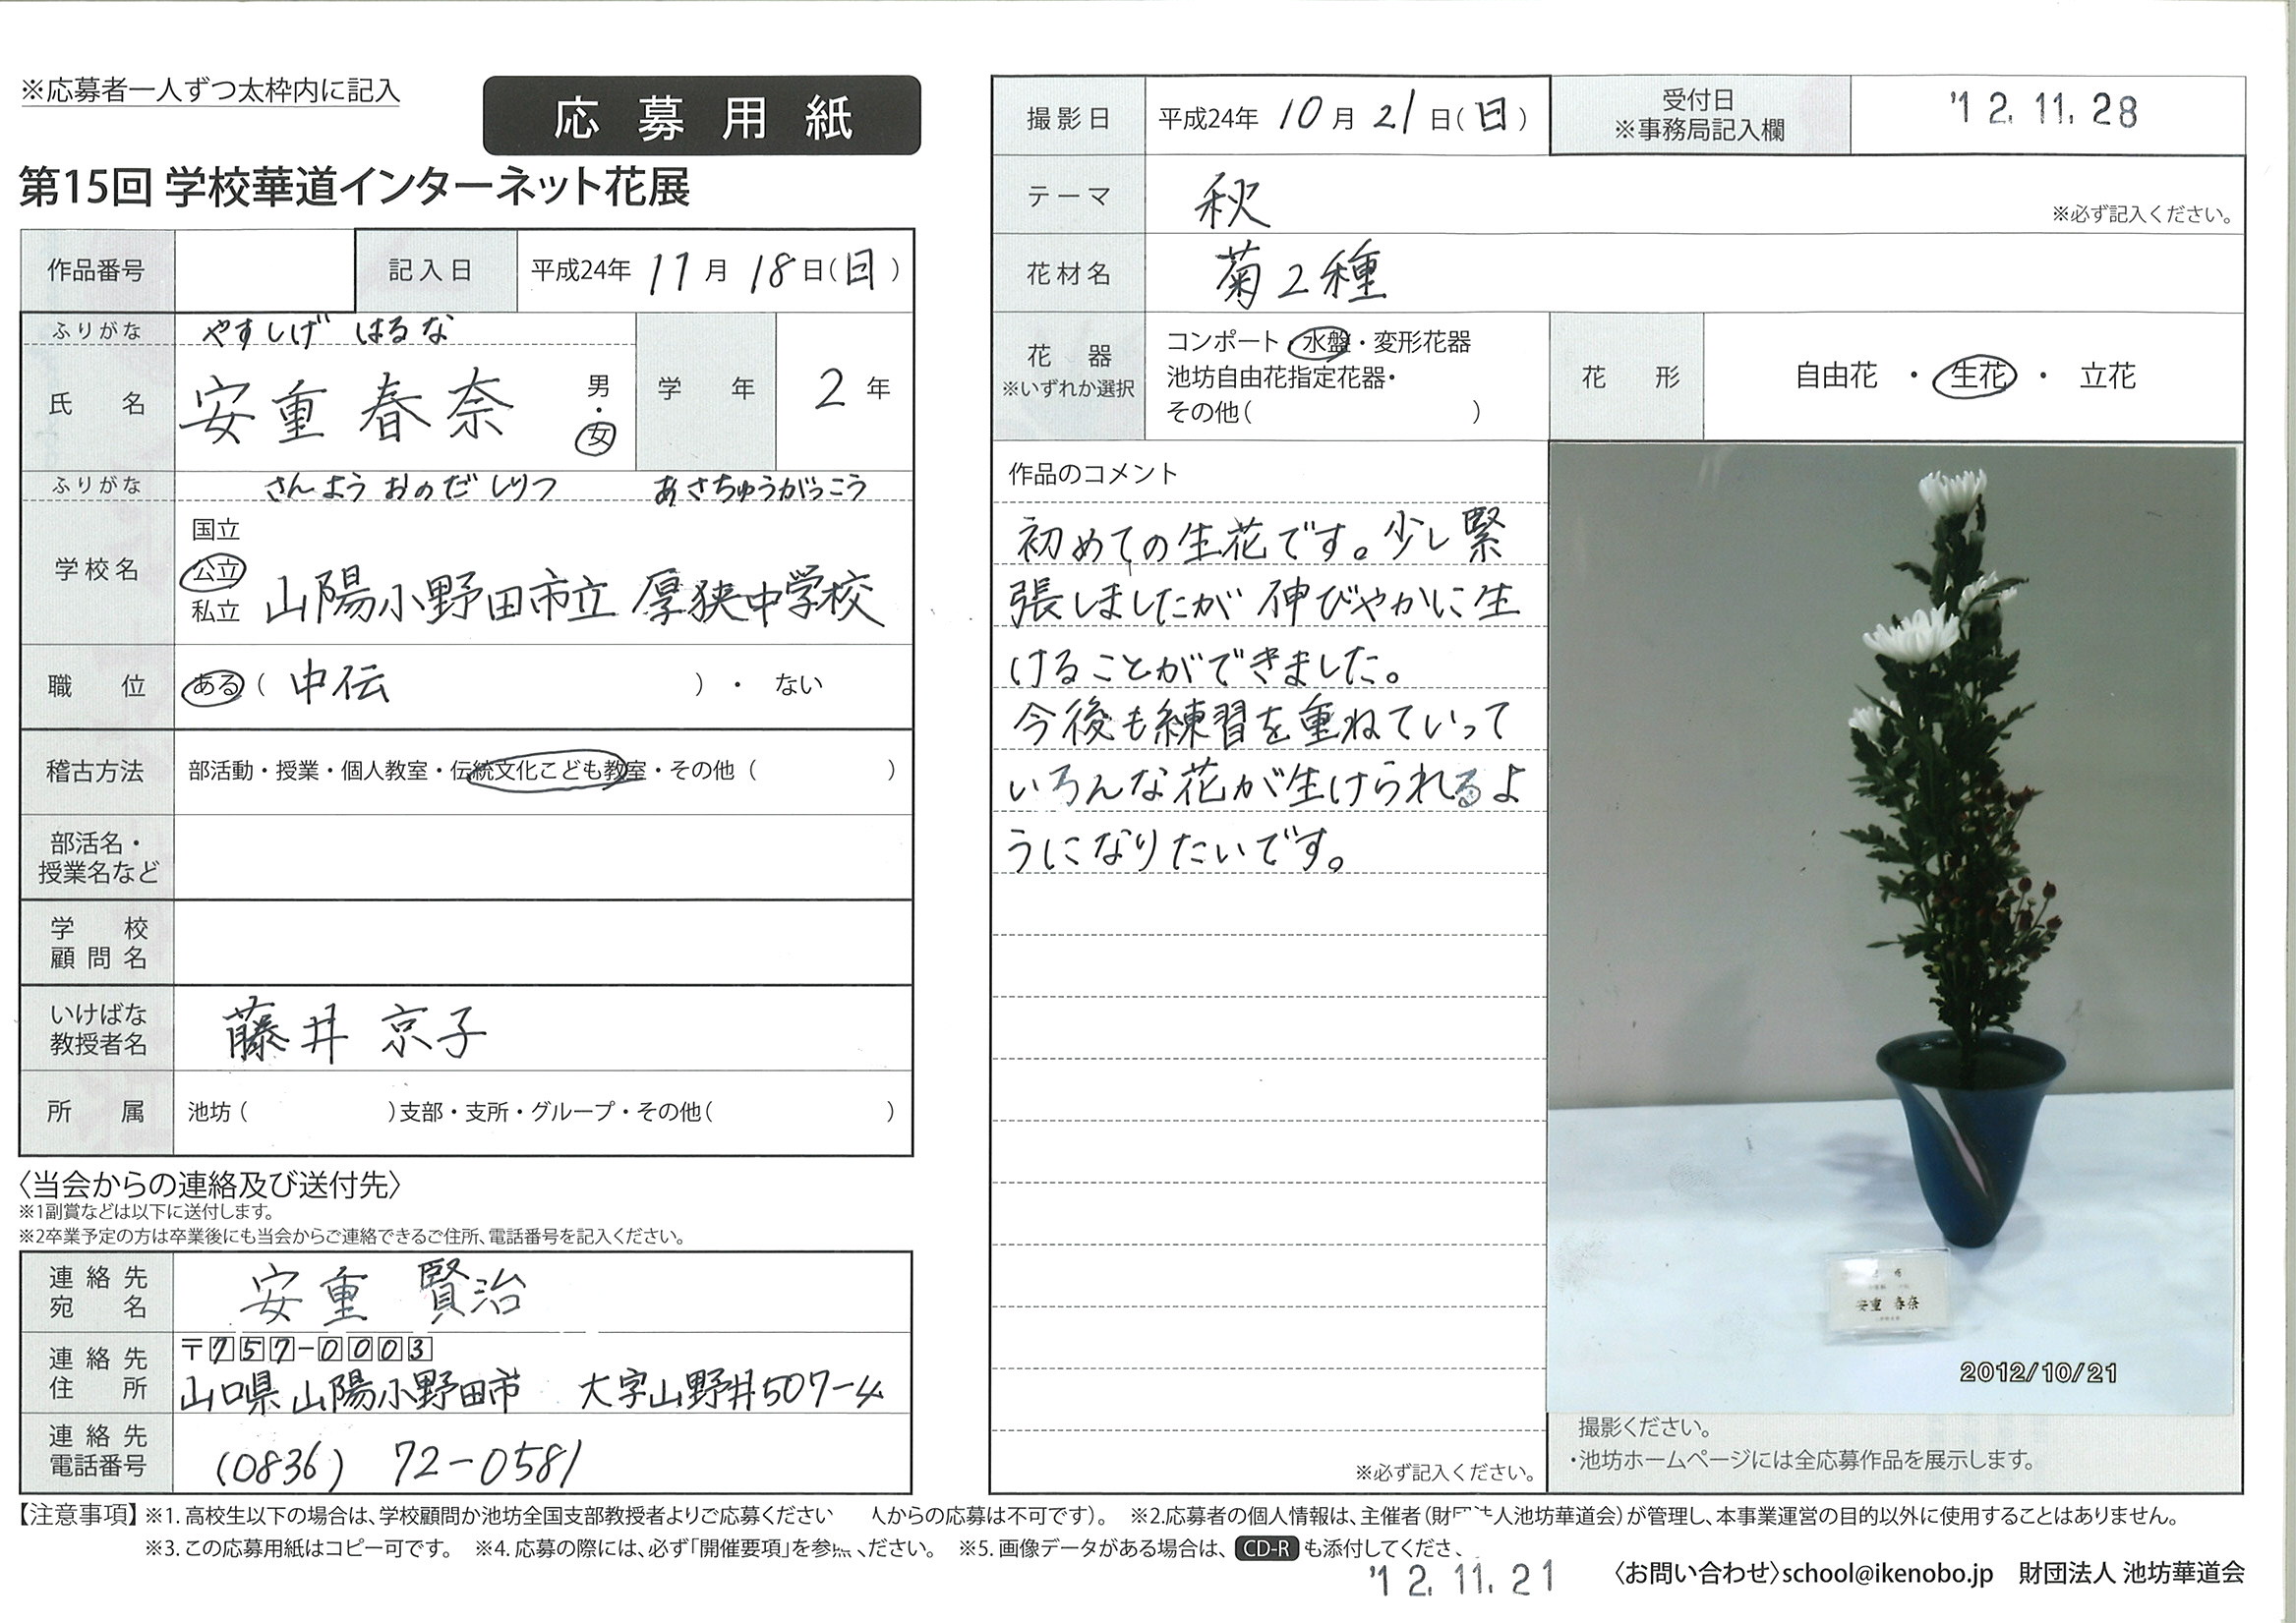 ※応募者一人ずつ太枠内に記入
応募用紙
第15回 学校華道インターネット花展
作品番号
記入日 平成24年 11月 18日(日)
ふりがな やすしげ はるな
氏名 安重 春奈 男・女
学年 2年
ふりがな さんようおのだしりつ あさちゅうがっこう
学校名 国立
公立
私立 山陽小野田市立 厚狭中学校
職位 ある( 中伝 )・ ない
稽古方法 部活動・授業・個人教室・伝統文化こども教室・その他( )
部活名・
授業名など
学校
顧問名
いけばな
教授者名 藤井 京子
所属 池坊( )支部・支所・グループ・その他( )
〈当会からの連絡及び送付先〉
※1副賞などは以下に送付します。
※2卒業予定の方は卒業後にも当会からご連絡できるご住所、電話番号を記入ください。
連絡先
宛名 安重 賢治
連絡先
住所 〒757-0003
山口県山陽小野田市 大字山野井507-4
連絡先
電話番号 (0836) 72-0581
撮影日 平成24年 10月 21日(日)
受付日
※事務局記入欄 '12.11.28
テーマ 秋 ※必ず記入ください。
花材名 菊2種
花器
※いずれか選択
コンポート・水盤・変形花器
池坊自由花指定花器・
その他( )
花形 自由花 ・ 生花 ・ 立花
作品のコメント
初めての生花です。少し緊
張しましたが伸びやかに生
けることができました。
今後も練習を重ねていって
いろんな花が生けられるよ
うになりたいです。
※必ず記入ください。
安重 春奈
2012/10/21
撮影ください。
・池坊ホームページには全応募作品を展示します。
【注意事項】※1. 高校生以下の場合は、学校顧問か池坊全国支部教授者よりご応募ください 人からの応募は不可です)。 ※2.応募者の個人情報は、主催者(財団法人池坊華道会)が管理し、本事業運営の目的以外に使用することはありません。
※3. この応募用紙はコピー可です。 ※4. 応募の際には、必ず「開催要項」を参照ください。 ※5. 画像データがある場合は、CD-Rも添付してくださ
'12.11.21
〈お問い合わせ〉school@ikenobo.jp 財団法人 池坊華道会